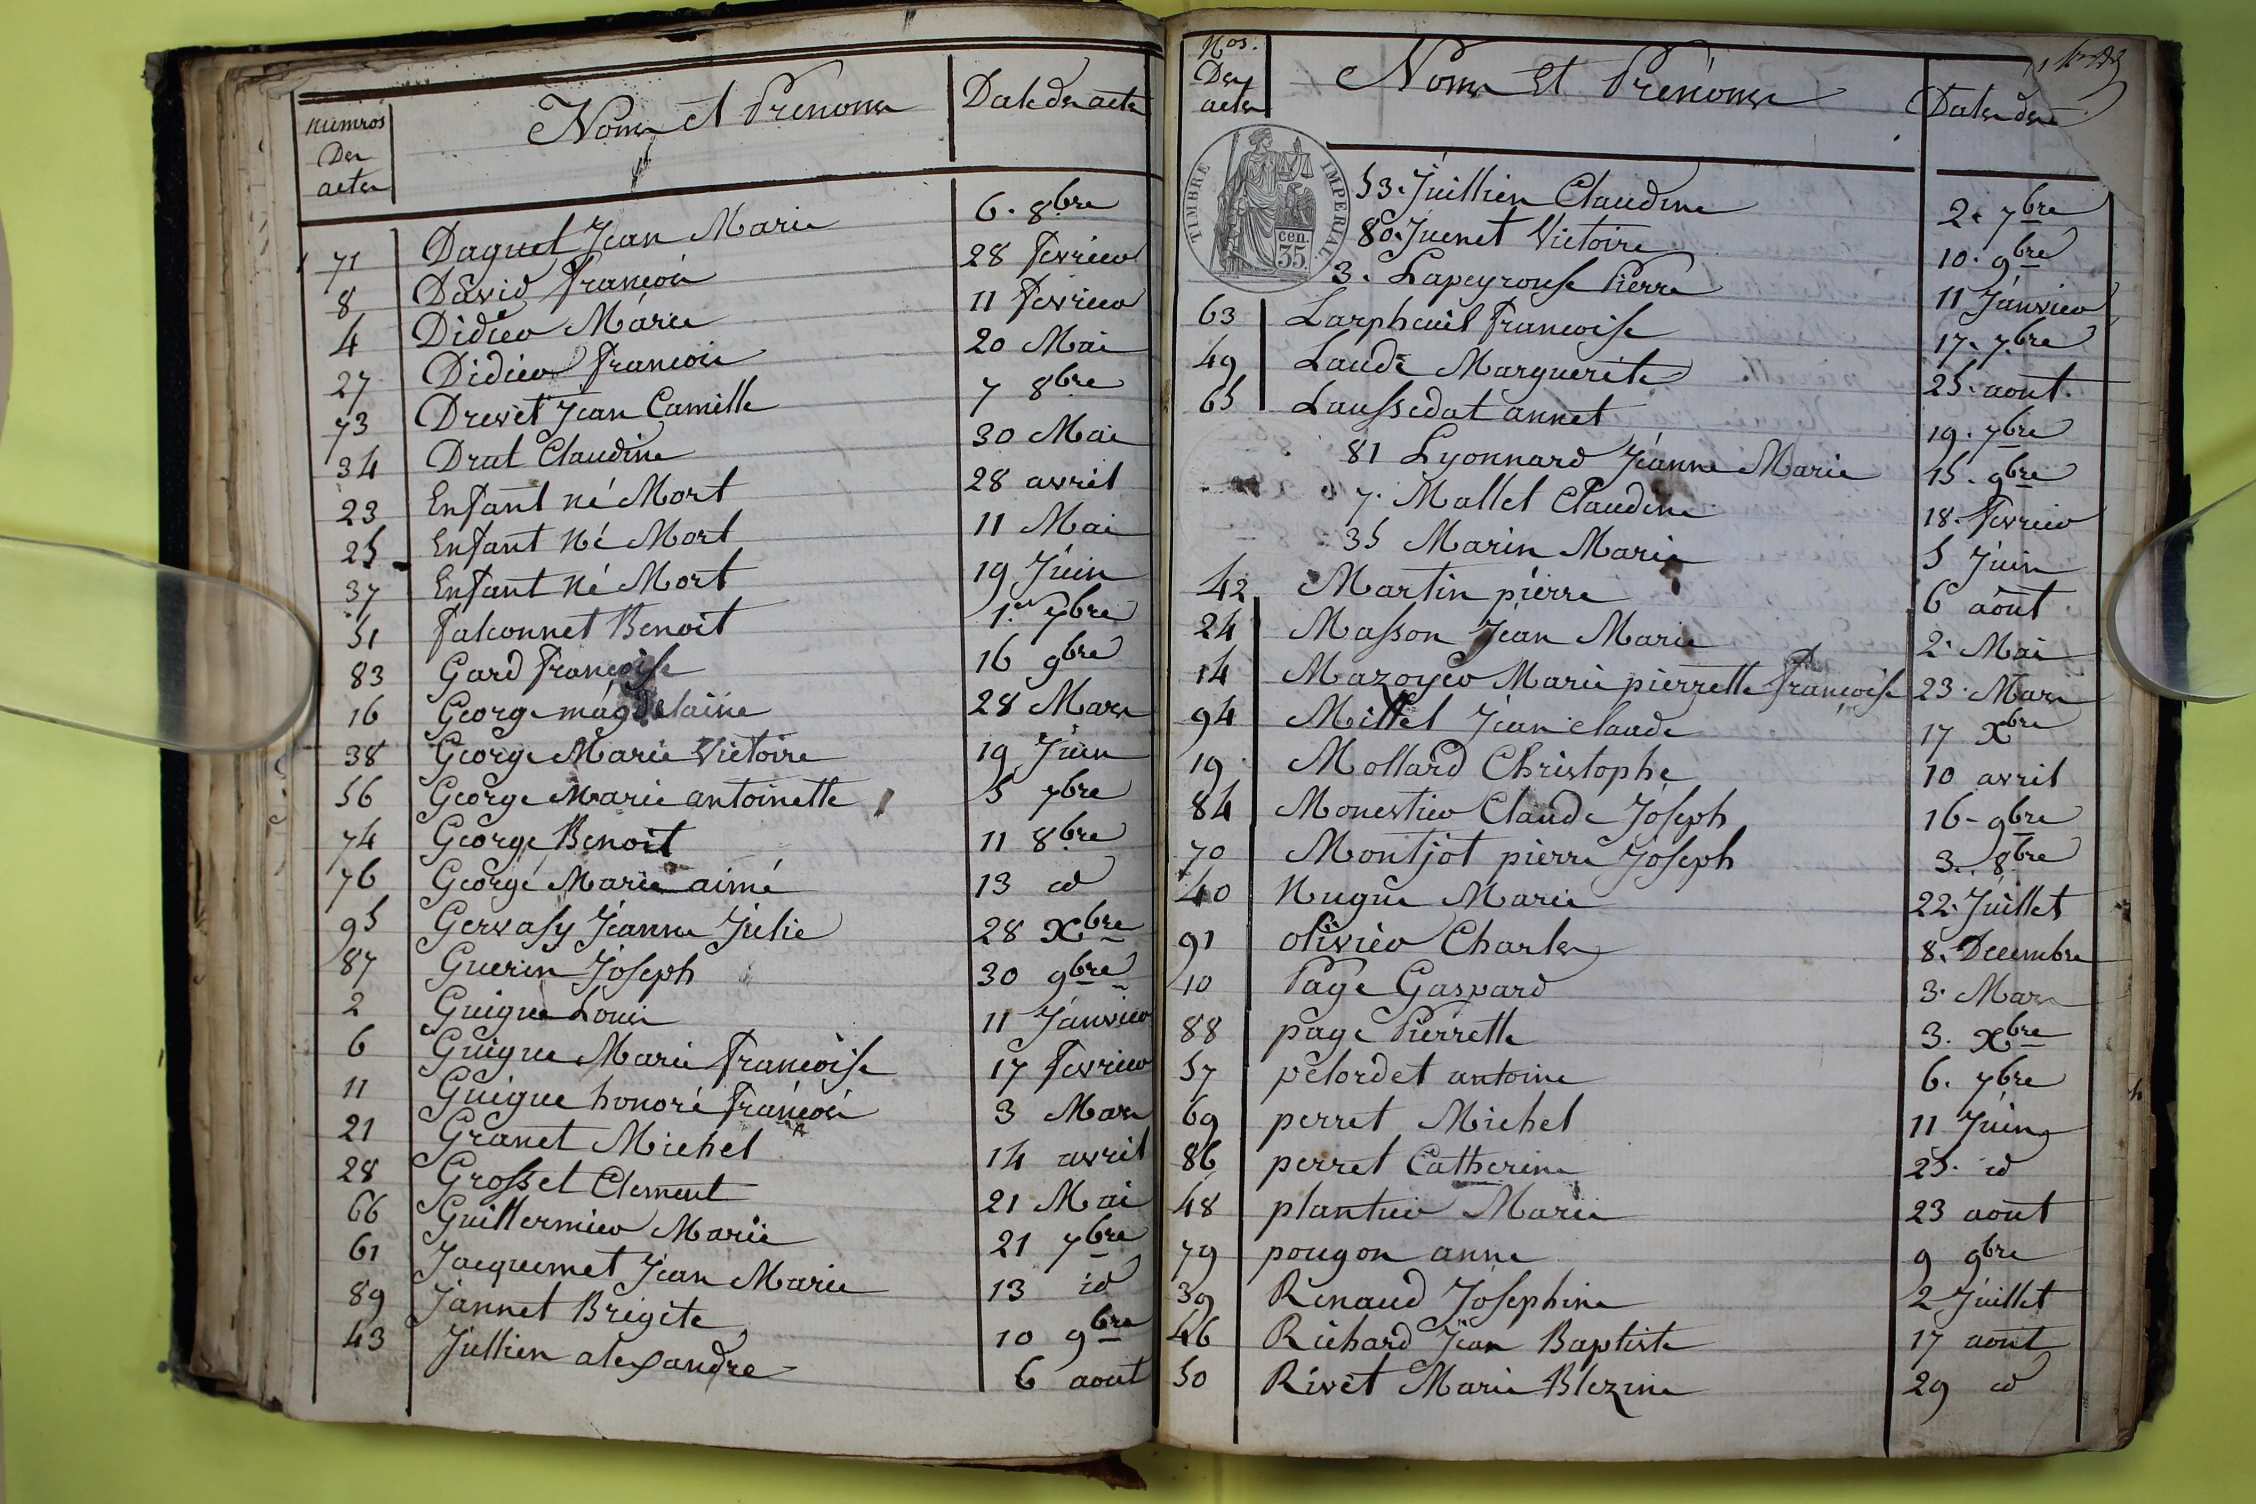 numéros Des actes
Noms et Prenoms
Date des actes
71 Daguet Jean Marie 6. 8bre
8 David François 28 fevrier
4 Didier Marie 11 fevrier
27 Didier François 20 Mai
73 Drevet Jean Camille 7 8bre
34 Drut Claudine 30 Mai
23 Enfant né Mort 28 avril
25 Enfant Né Mort 11 Mai
37 Enfant Né Mort 19 Juin
51 falconnet Benoit 1.er 7bre
83 Gard françoise 16 9bre
16 George magdelaine 28 Mars
38 George Marie Victoire 19 Juin
56 George Marie antoinette 5 7bre
74 George Benoit 11 8bre
76 George Marie aimé 13 id
95 Gervasy Jeanne Julie 28 Xbre
87 Guerin Joseph 30 9bre
2 Guigue Louis 11 Janvier
6 Guigue Marie françoise 17 fevrier
11 Guigue honoré françois 3 Mars
21 Granet Michel 14 avril
28 Grosset Clement 21 Mai
66 Guillermier Marie 21 7bre
61 Jacquemet Jean Marie 13 id
89 Jannet Brigite 10 9bre
43 Jullien alexandre 6 aout
Nos. Des actes
Noms Et Prénoms
Dates des
TIMBRE IMPERIAL
35 cen.
53. Juillien Claudine 2. 7bre
80. Juenet Victoire 10. 9bre
3. Lapeyrouse Pierre 11 Janvier
63 Larpheuil françoise 17. 7bre
49 Laude Marguerite 25. aout.
65 Laussedat annet 19. 7bre
81 Lyonnard Jeanne Marie 15. 9bre
7. Mallet Claudine 18. fevrier
35 Marin Marie 5 Juin
42 Martin pierre 6 aout
24 Masson Jean Marie 2. Mai
14 Mazoyer Marie pierrette françoise 23. Mars
94 Millet Jean claude 17 Xbre
19 Mollard Christophe 10 avril
84 Monestier Claude Joseph 16 - 9bre
70 Montjot pierre Joseph 3. 8bre
40 Nugue Marie 22. Juillet
91 olivier Charles 8. Decembre
10 Page Gaspard 3. Mars
88 page Pierrette 3. Xbre
57 pelordet antoine 6. 7bre
69 perret Michel 11 Juin
86 perret Catherine 25. id
48 plantier Marie 23 aout
79 pougon anne 9 9bre
39 Renaud Josephine 2 Juillet
46 Richard Jean Baptiste 17 aout
50 Rivet Marie Blezine 29 id